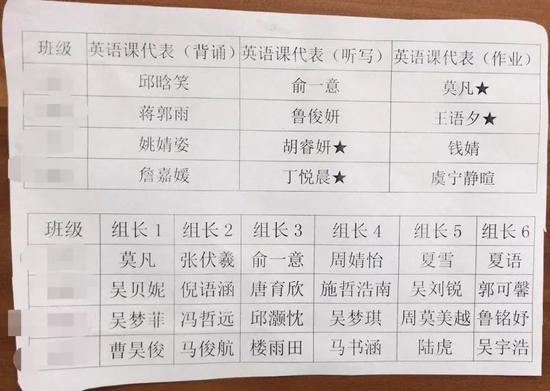 班级 英语课代表（背诵） 英语课代表（听写） 英语课代表（作业）
邱晗笑 俞一意 莫凡★
蒋郭雨 鲁俊妍 王语夕★
姚婧姿 胡睿妍★ 钱婧
詹嘉媛 丁悦晨★ 虞宁静暄
班级 组长1 组长2 组长3 组长4 组长5 组长6
莫凡 张伏羲 俞一意 周婧怡 夏雪 夏语
吴贝妮 倪语涵 唐育欣 施哲浩南 吴刘锐 郭可馨
吴梦菲 冯哲远 邱灏忱 吴梦琪 周莫美越 鲁铭妤
曹昊俊 马俊航 楼雨田 马书涵 陆虎 吴宇浩